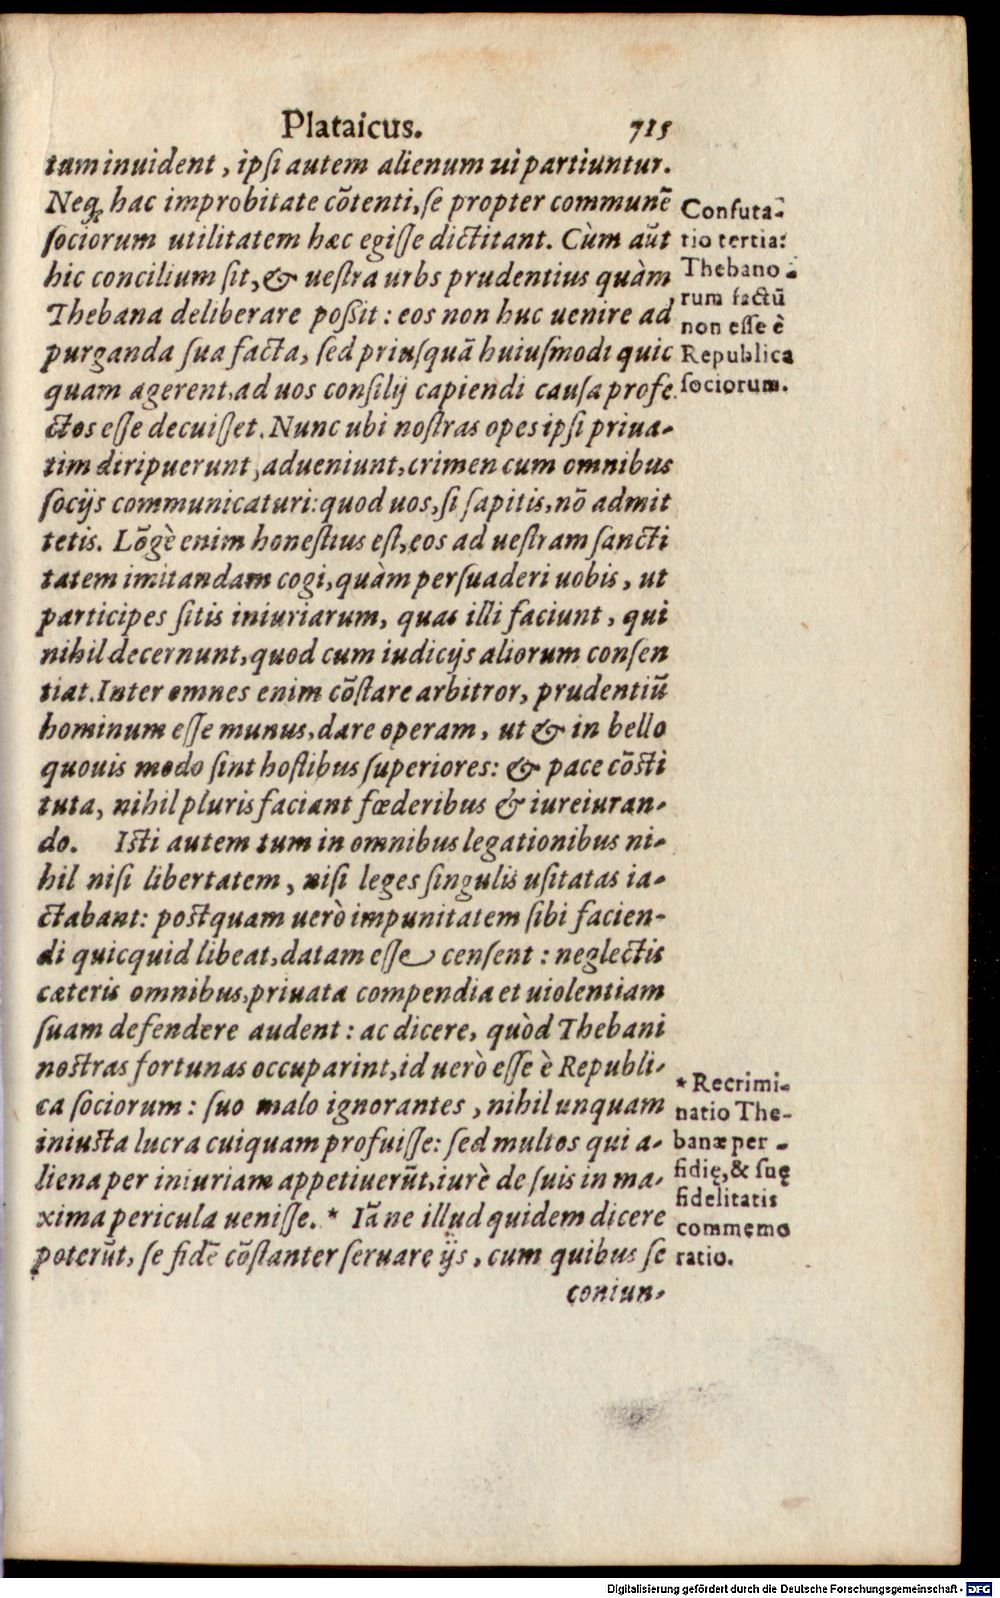 Plataicus. 715
tam inuident, ipſi autem alienum ui partiuntur.
Neq; hac improbitate cōtenti, ſe propter communē
ſociorum utilitatem hæc egiſſe dictitant. Cùm aūt
hic concilium ſit, & ueſtra urbs prudentius quàm
Thebana deliberare poßit: eos non huc uenire ad
purganda ſua facta, ſed priuſquā huiuſmodi quic
quam agerent, ad uos conſilij capiendi cauſa profe
ctos eſſe decuiſſet. Nunc ubi noſtras opes ipſi priua-
tim diripuerunt, adueniunt, crimen cum omnibus
ſocijs communicaturi: quod uos, ſi ſapitis, nō admit
tetis. Lōgè enim honeſtius eſt, eos ad ueſtram ſancti
tatem imitandam cogi, quàm perſuaderi uobis, ut
participes ſitis iniuriarum, quas illi faciunt, qui
nihil decernunt, quod cum iudicijs aliorum conſen
tiat. Inter omnes enim cōſtare arbitror, prudentiū
hominum eſſe munus, dare operam, ut & in bello
quouis modo ſint hoſtibus ſuperiores: & pace cōſti
tuta, nihil pluris faciant fœderibus & iureiuran-
do. Iſti autem tum in omnibus legationibus ni-
hil niſi libertatem, niſi leges ſingulis uſitatas ia-
ctabant: poſtquam uerò impunitatem ſibi facien-
di quicquid libeat, datam eſſe cenſent: neglectis
cæteris omnibus, priuata compendia et uiolentiam
ſuam defendere audent: ac dicere, quòd Thebani
noſtras fortunas occuparint, id uerò eſſe è Republi-
ca ſociorum: ſuo malo ignorantes, nihil unquam
iniuſta lucra cuiquam profuiſſe: ſed multos qui a-
liena per iniuriam appetiuerūt, iurè de ſuis in ma-
xima pericula ueniſſe. * Iā ne illud quidem dicere
poterūt, ſe fidē cōſtanter ſeruare ijs, cum quibus ſe
coniun-
Confuta-
tio tertia:
Thebano-
rum factū
non eſſe è
Republica
ſociorum.
* Recrimi-
natio The-
banæ per-
fidię, & ſuę
fidelitatis
commemo
ratio.
Digitalisierung gefördert durch die Deutsche Forschungsgemeinschaft - DFG